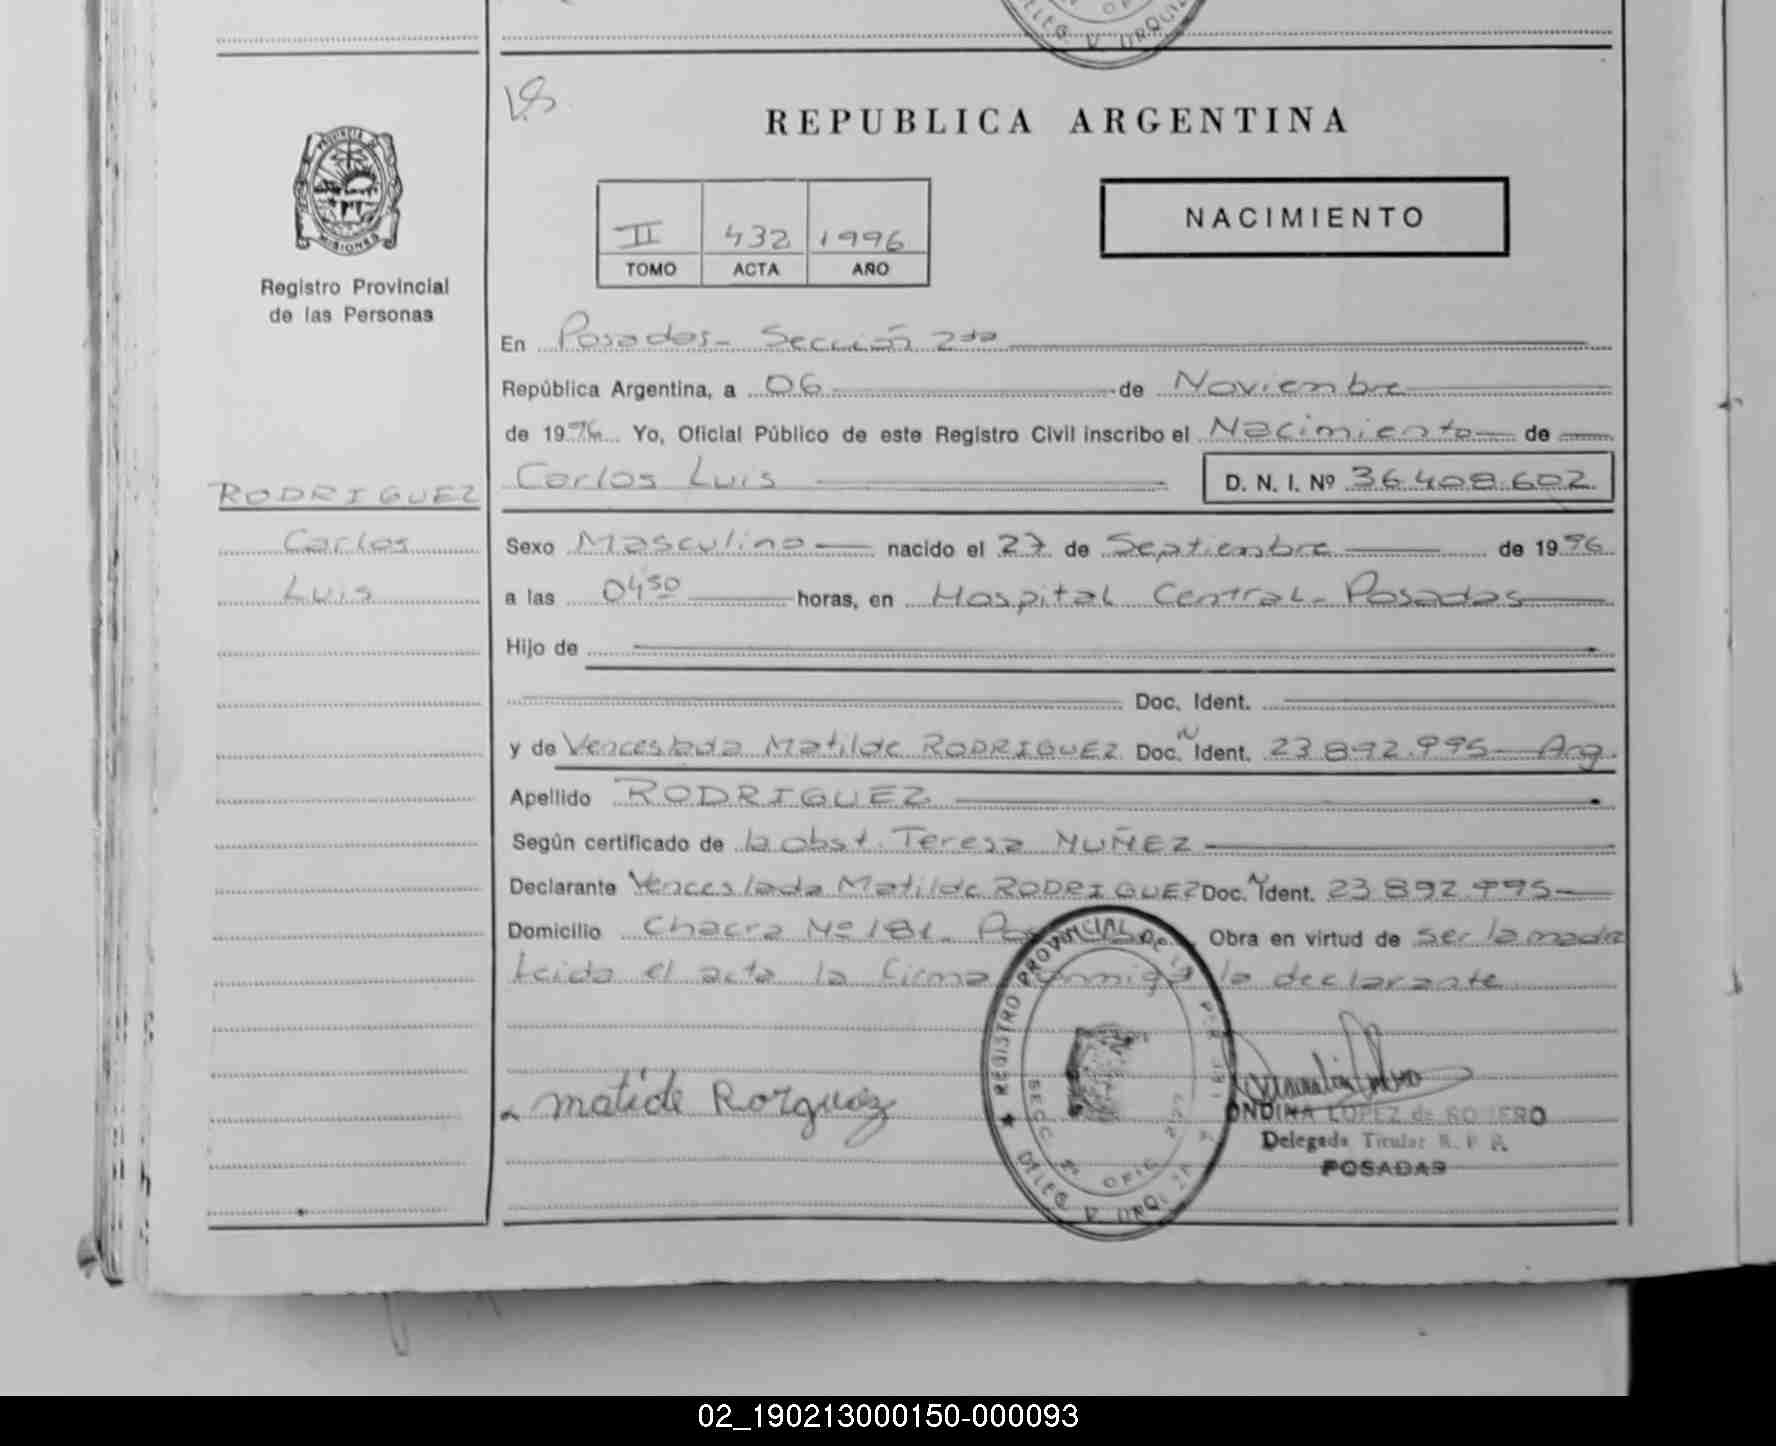 DELEG. V. URQUIZA
REPUBLICA ARGENTINA
PROVINCIA DE
MISIONES
Registro Provincial
de las Personas
NACIMIENTO
II 432 1996
TOMO ACTA AÑO
En Posadas- Sección 2da
República Argentina, a 06 de Noviembre
de 1996 Yo, Oficial Público de este Registro Civil inscribo el Nacimiento de
Carlos Luis D. N. I. Nº 36.408.602
RODRIGUEZ
Carlos
Luis
Sexo Masculino nacido el 27 de Septiembre de 1996
a las 0450 horas, en Hospital Central- Posadas
Hijo de
Doc. Ident.
y de Venceslada Matilde RODRIGUEZ Doc. N Ident. 23.892.995- Arg.
Apellido RODRIGUEZ
Según certificado de la obst. Teresa NUÑEZ
Declarante Venceslada Matilde RODRIGUEZ Doc. N Ident. 23.892.995-
Domicilio Chacra Nº 181- Obra en virtud de ser la madre
Leida el acta la firma conmigo la declarante
matide Rorguez
REGISTRO PROVINCIAL DE
SECC 2ª OFIC
DELEG. V. URQUIZA
ONDINA LOPEZ de ROMERO
Delegada Titular R. P. P.
POSADAS
02_190213000150-000093